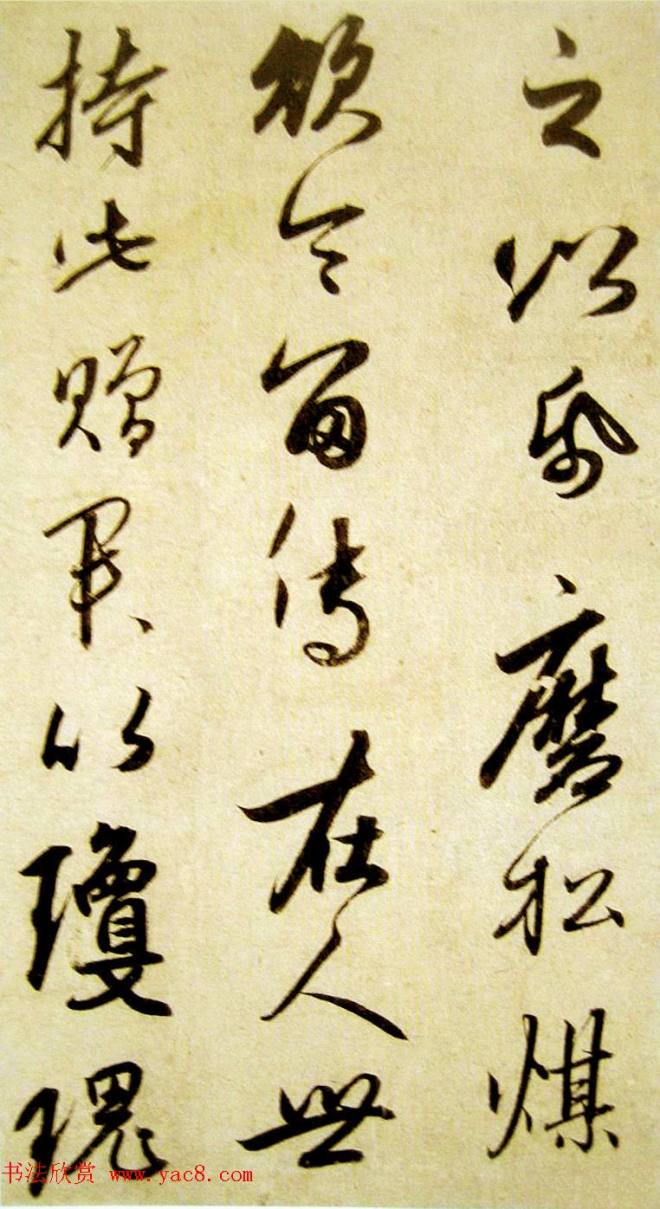 之以帋磨松煤
欲令留傳在人世
持此贈君以瓊瑰
书法欣赏 www.yac8.com